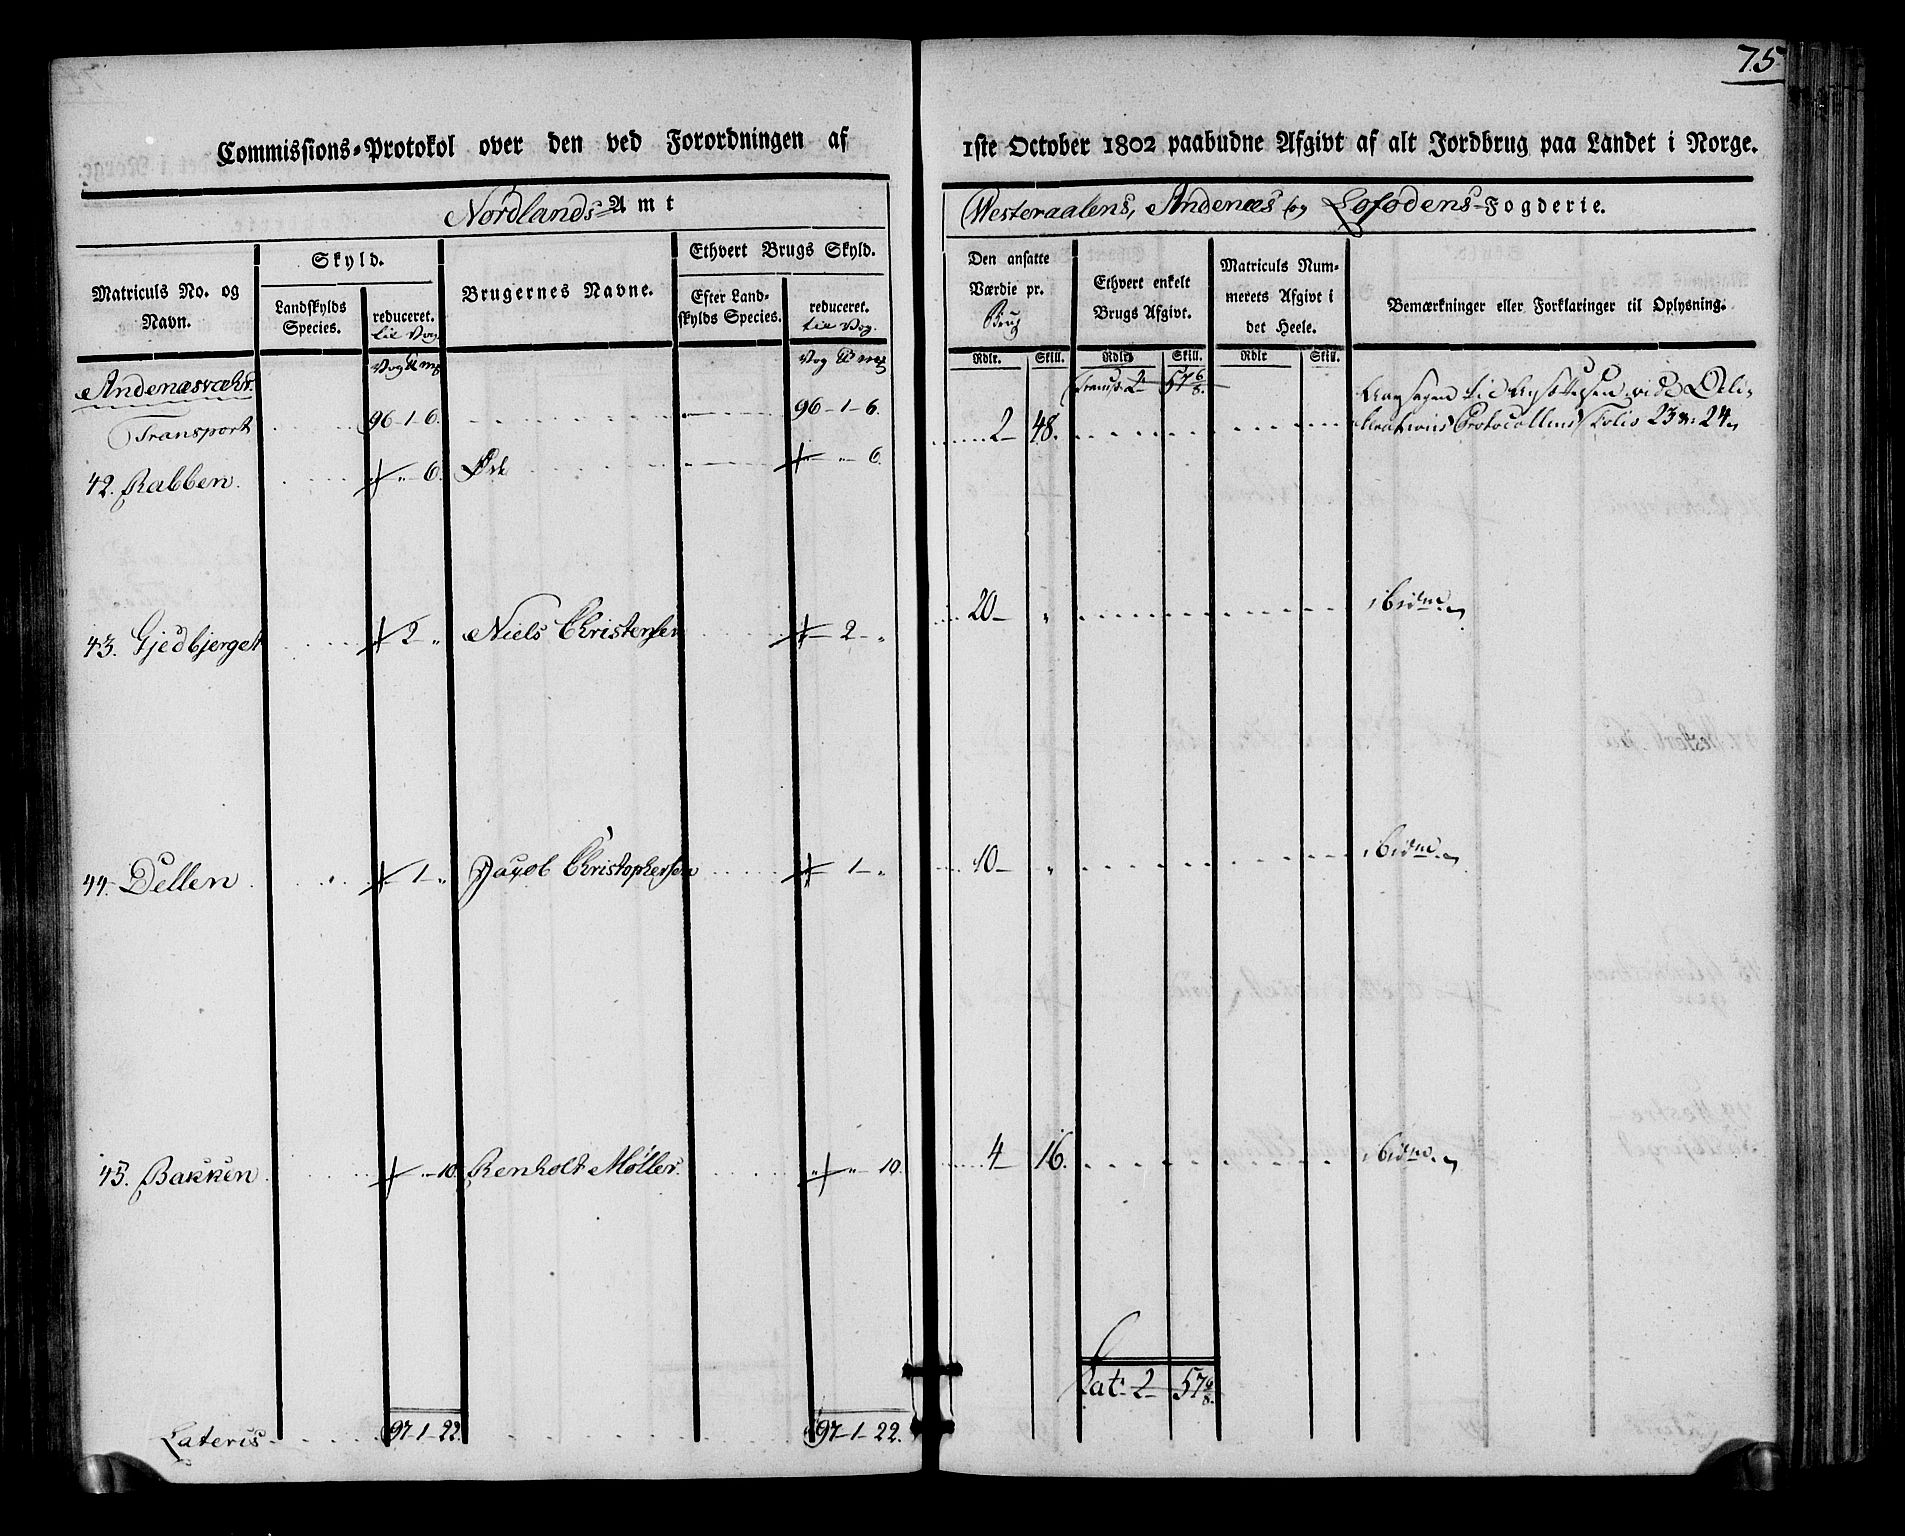 75
Commissions-Protokol over den ved Forordningen af 1ste October 1802 paabudne Afgivt af alt Jordbrug paa Landet i Norge.
Nordlands-Amt
Westeraalens, Andenæs og Lofodens-Fogderie.
Matriculs No. og Navn.
Skyld.
Landskylds Species.
reduceret. til Vog.
Brugernes Navne.
Ethvert Brugs Skyld.
Efter Landskylds Species.
reduceret. til Vog.
Den ansatte Værdie pr. Brug
Ethvert enkelt Brugs Afgivt.
Matriculs Nummerets Afgivt i det Heele.
Bemærkninger eller Forklaringer til Oplysning.
Rdlr. Skill. Rdlr Skill. Rdlr Skill.
Andenæsvæhr.
Transport 96-1-6. 96-1-6. Transp. 2 57 6/8.
42. Rabben. 6. Øde 6. 2 48. Protocollens Folio 23 & 24
43. Gjedbjerget 2 „ Niels Christensen 2 „ 20 „ ibidm.
44. Dellen 1 „ Jacob Christophersen 1 „ 10 „ ibidm.
45. Bakken 10. Renholdt Møller. 10. 4 16. ibidm.
Lat. 2 57 6/8.
Lateris 97-1-22. 97-1-22.